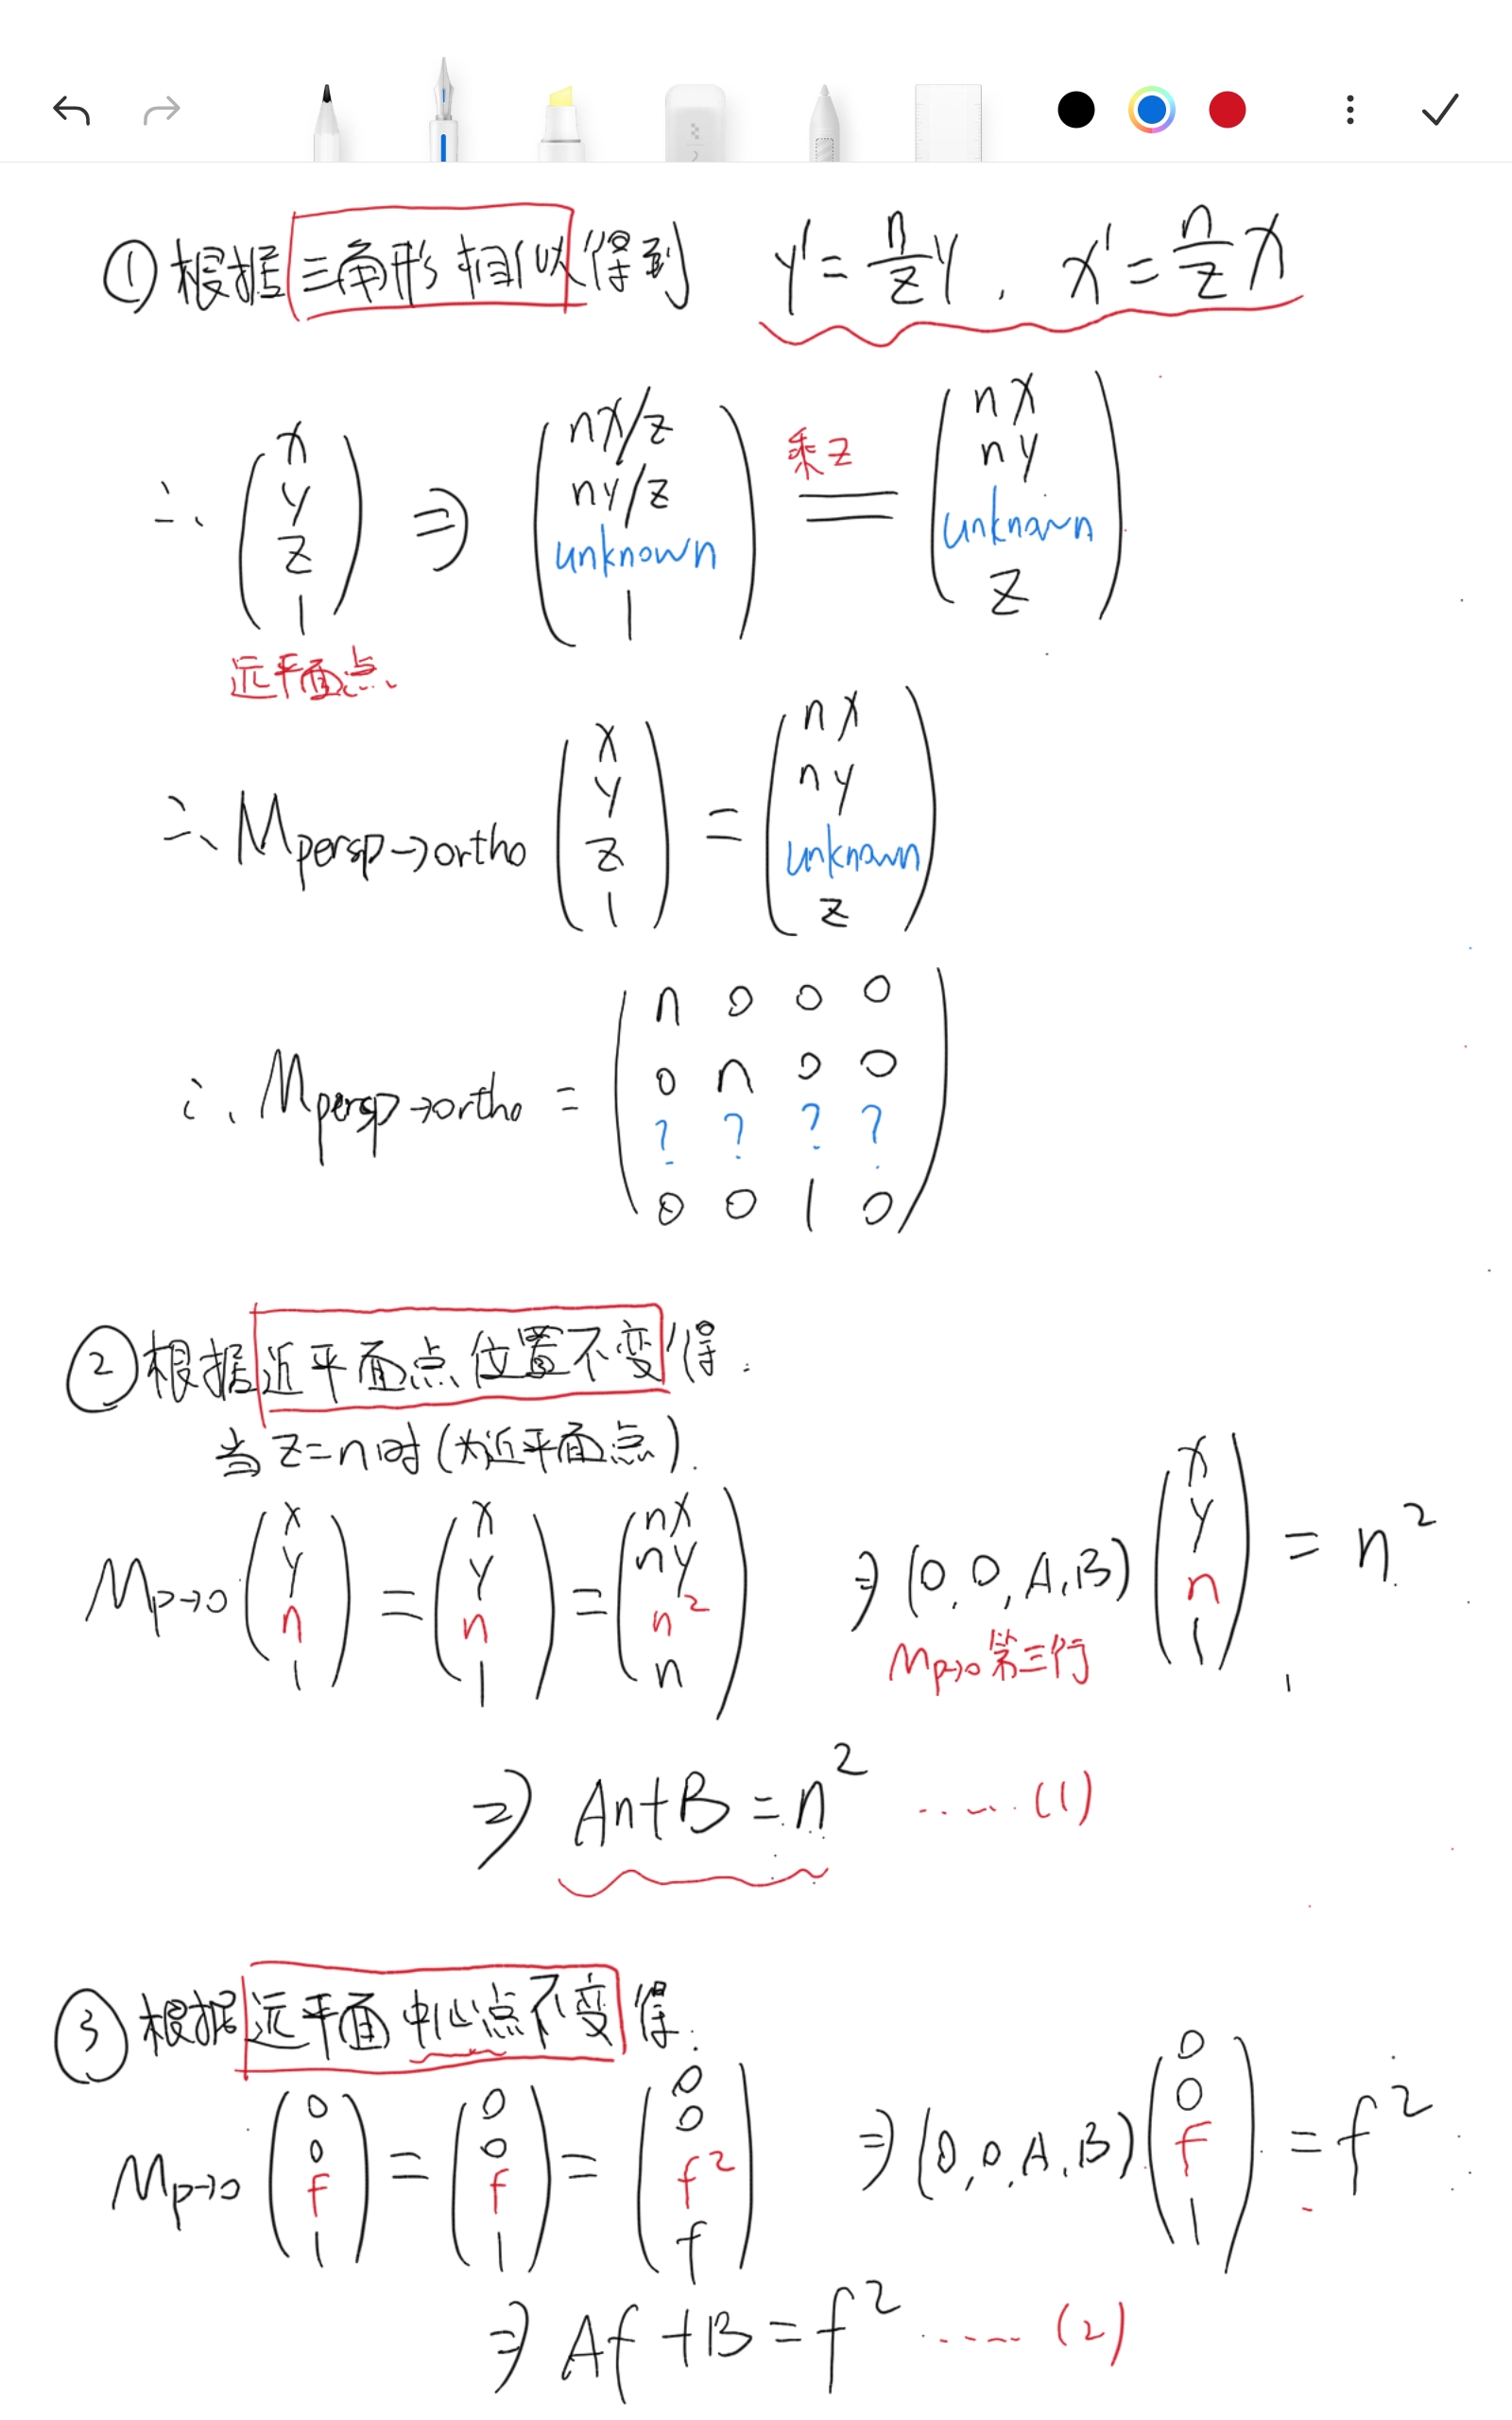 ① 根据三角形相似得到 y' = n/z y, x' = n/z x
∴ (x y z 1) ⇒ (nx/z ny/z unknown 1) 乘z = (nx ny unknown z)
远平面点
∴ M persp→ortho (x y z 1) = (nx ny unknown z)
∴ M persp→ortho = (n 0 0 0
0 n 0 0
? ? ? ?
0 0 1 0)
② 根据近平面点位置不变得:
当 z=n时(为近平面点).
M p→o (x y n 1) = (x y n 1) = (nx ny n² n) ⇒ (0,0,A,B) (x y n 1) = n²
M p→o 第三行
⇒ An+B=n² ...... (1)
③ 根据远平面中心点不变得:
M p→o (0 0 f 1) = (0 0 f 1) = (0 0 f² f) ⇒ (0,0,A,B) (0 0 f 1) = f²
⇒ Af+B=f² ...... (2)